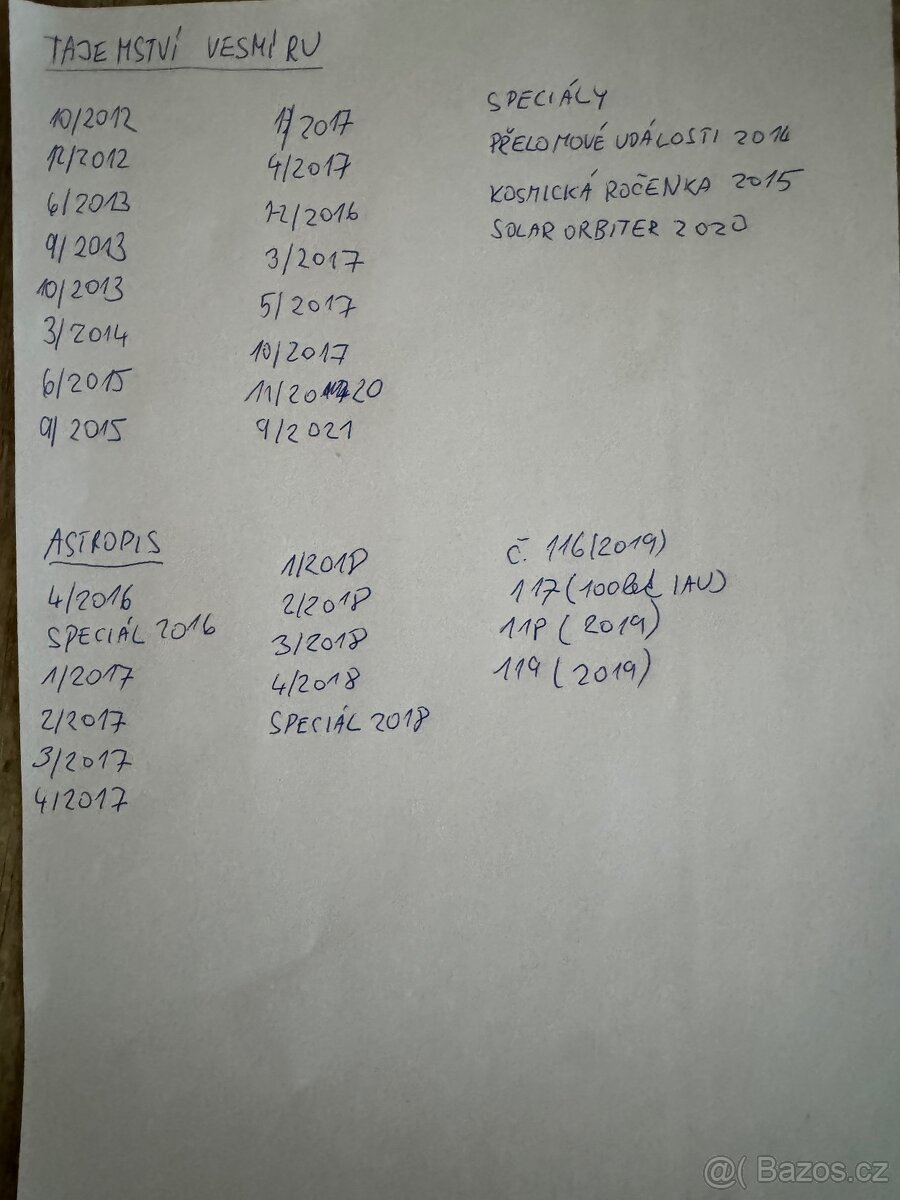 TAJEMSTVÍ VESMÍRU
10/2012
12/2012
6/2013
9/2013
10/2013
3/2014
6/2015
9/2015
1/2017
4/2017
1-2/2016
3/2017
5/2017
10/2017
11/2020
9/2021
SPECIÁLY
PŘELOMOVÉ UDÁLOSTI 2014
KOSMICKÁ ROČENKA 2015
SOLAR ORBITER 2020
ASTROPIS
4/2016
SPECIÁL 2016
1/2017
2/2017
3/2017
4/2017
1/2018
2/2018
3/2018
4/2018
SPECIÁL 2018
č. 116 (2019)
117 (100 let IAU)
118 (2019)
119 (2019)
@( Bazos.cz